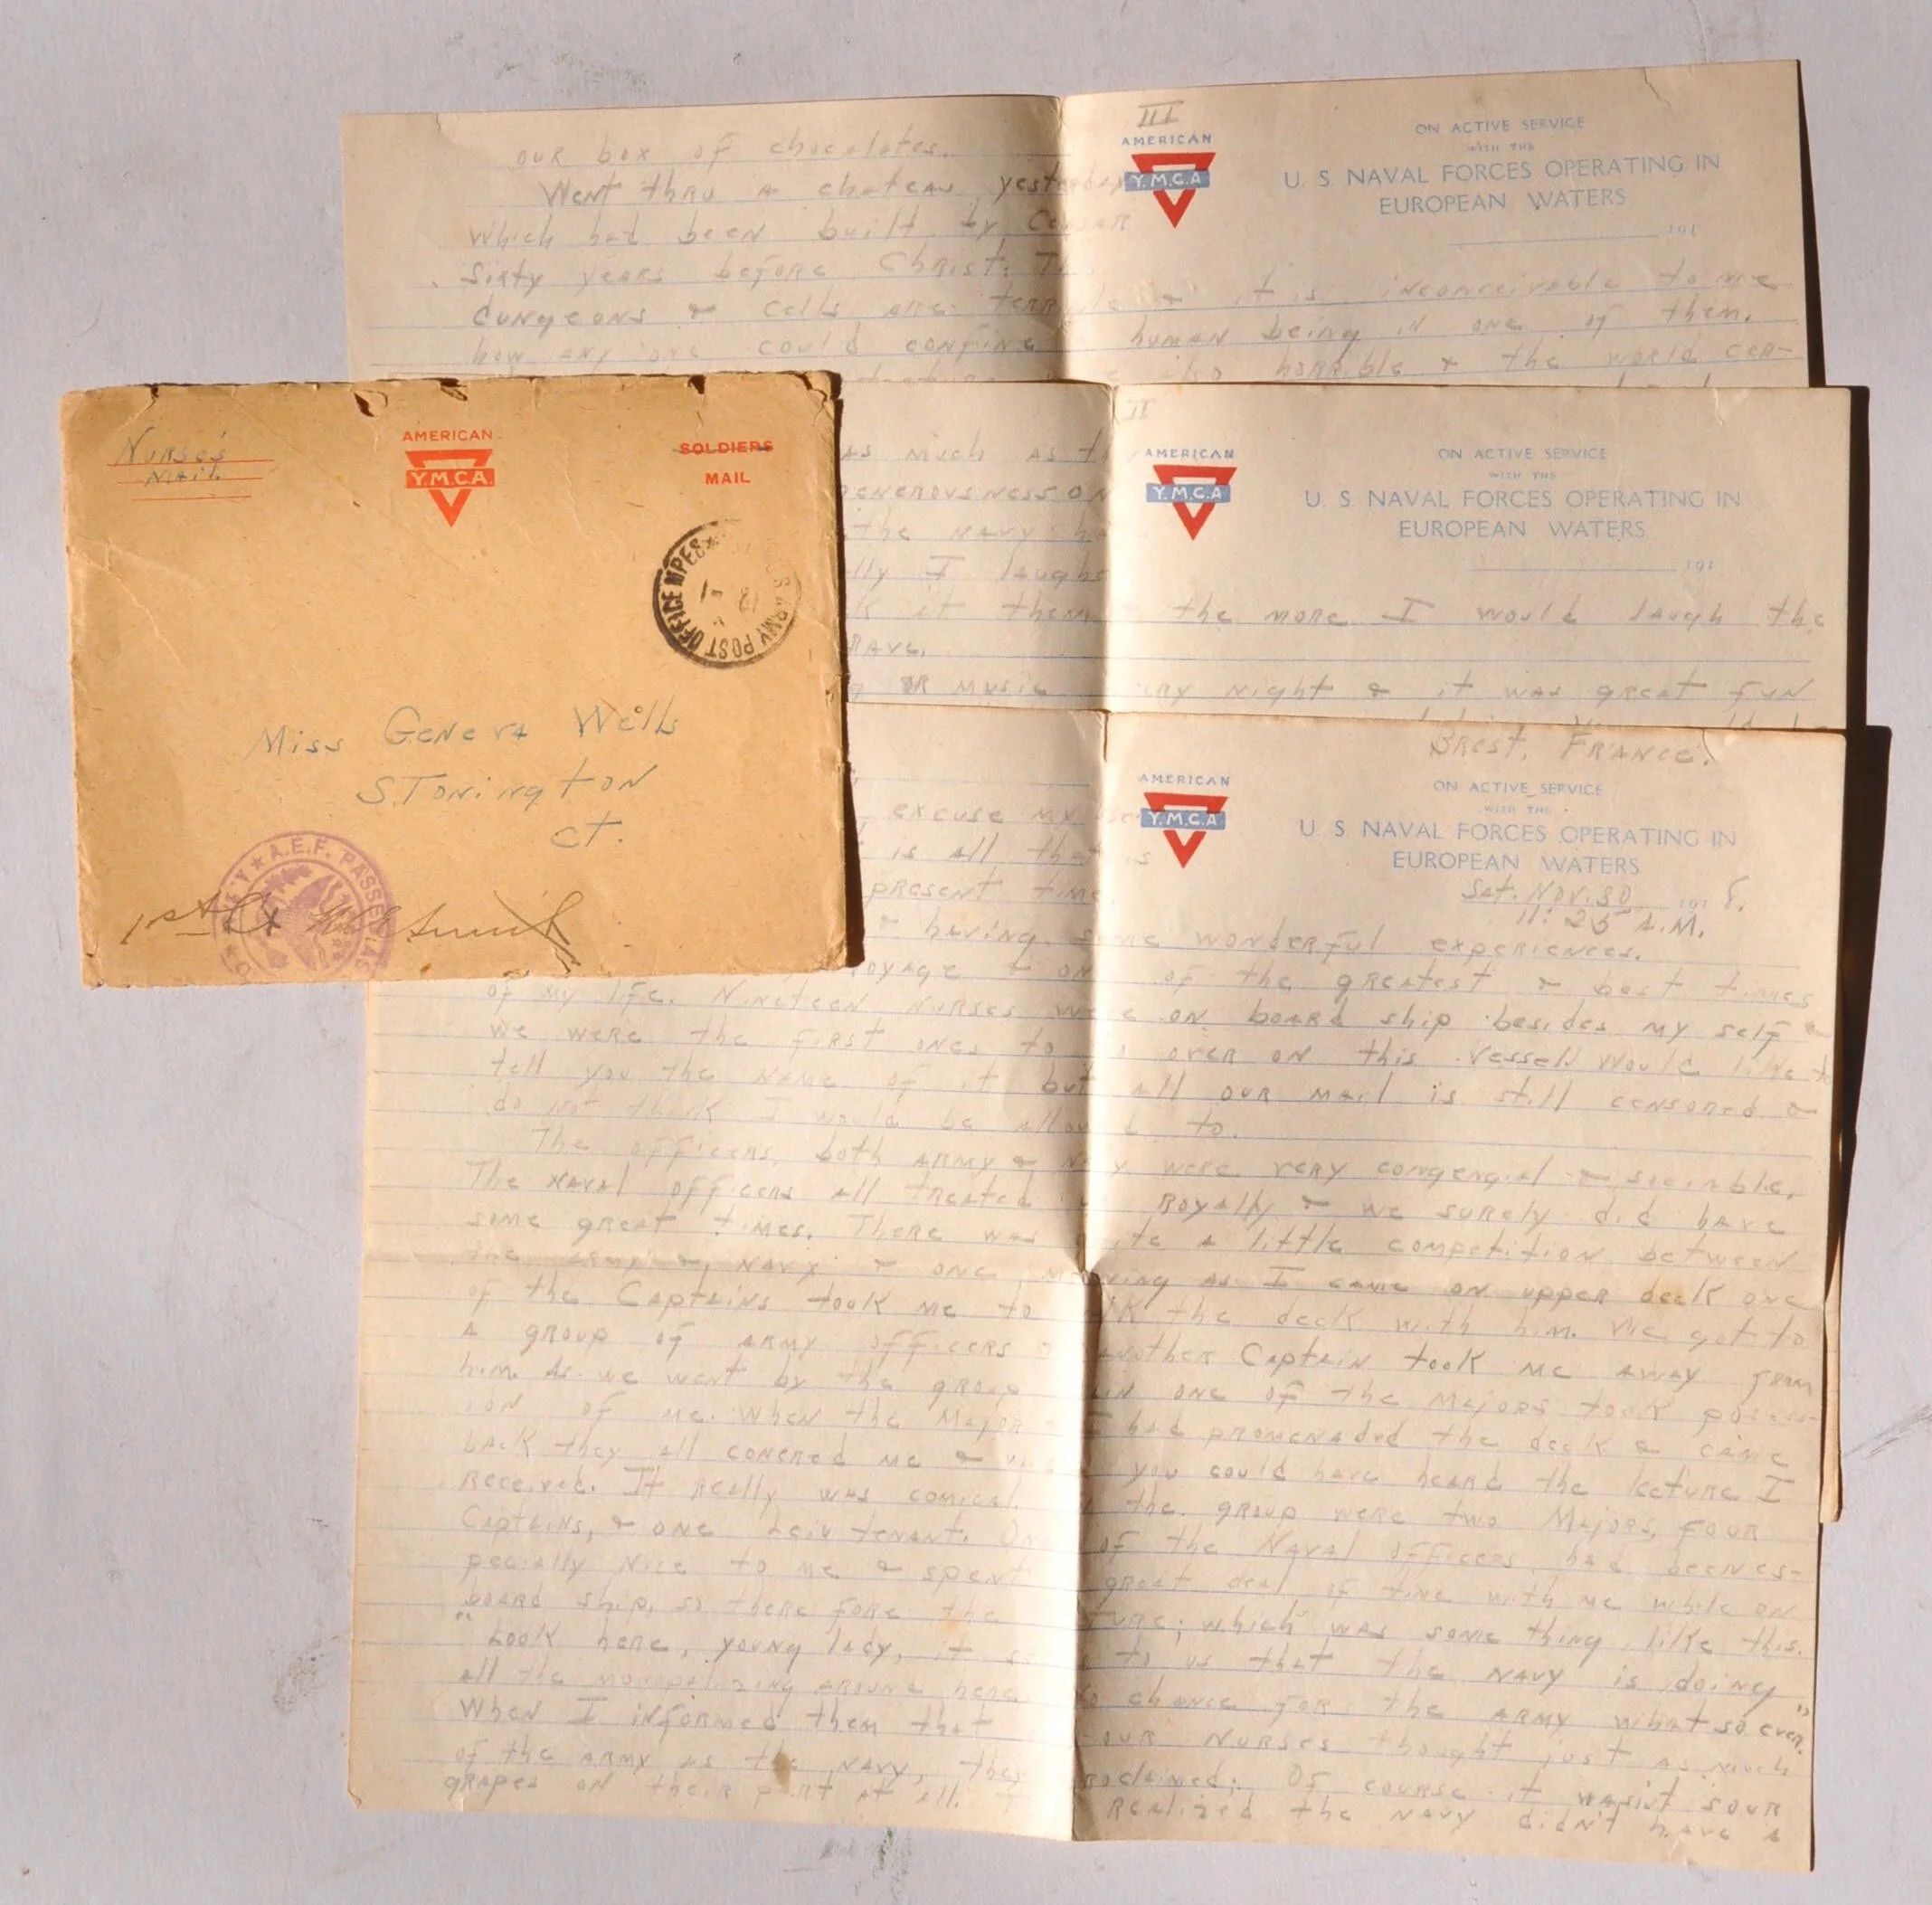 our box of chocolates.
Went thru a chateau yesterday
which had been built by Ceasar
Sixty years before Christ. The
dungeons & cells are terrible & it is inconceivable to me
how any one could confine a human being in one of them.
so horrible & the world cer-
III
AMERICAN
Y.M.C.A
ON ACTIVE SERVICE
WITH THE
U. S. NAVAL FORCES OPERATING IN
EUROPEAN WATERS
191
Nurse's
Mail
AMERICAN
Y.M.C.A.
SOLDIERS
MAIL
U.S. ARMY POST OFFICE MPES
Miss Geneva Wells
Stonington
Ct.
A.E.F. PASSED AS
1st Lt
II
AMERICAN
Y.M.C.A
ON ACTIVE SERVICE
WITH THE
U. S NAVAL FORCES OPERATING IN
EUROPEAN WATERS
191
as much as
generousness on
the Navy
I laughed
it them & the more I would laugh the
or music every night & it was great fun
Brest, France.
AMERICAN
Y.M.C.A
ON ACTIVE SERVICE
WITH THE
U. S NAVAL FORCES OPERATING IN
EUROPEAN WATERS
Sat. Nov. 30 191 8.
11:25 A.M.
excuse my
is all that is
present time
& having some wonderful experiences.
voyage & one of the greatest & best times
of my life. Nineteen nurses were on board ship besides my self &
we were the first ones to go over on this vessel. Would like to
tell you the name of it but all our mail is still censored &
do not think I would be allowed to.
The officers, both army & Navy were very congengial & sociable.
The naval officers all treated us royally & we surely did have
some great times. There was quite a little competition between
the army & navy & one morning as I came on upper deck one
of the Captains took me to walk the deck with him. We got to
a group of army officers & another Captain took me away from
him. As we went by the group again one of the Majors took posses-
ion of me. When the Major & I had promenaded the deck & came
back they all conered me & wish you could have heard the lecture I
received. It really was comical. In the group were two Majors, four
Captains, & one Leiutenant. One of the Naval officers had been es-
pecially nice to me & spent a great deal of time with me while on
board ship, so there fore the lecture; which was some thing like this.
"Look here, young lady, it seems to us that the navy is doing
all the monopolizing around here. No chance for the army what so ever."
When I informed them that our nurses thought just as much
of the army as the navy, they proclaimed; Of course it wasn't sour
grapes on their part at all. I realized the navy didn't have a